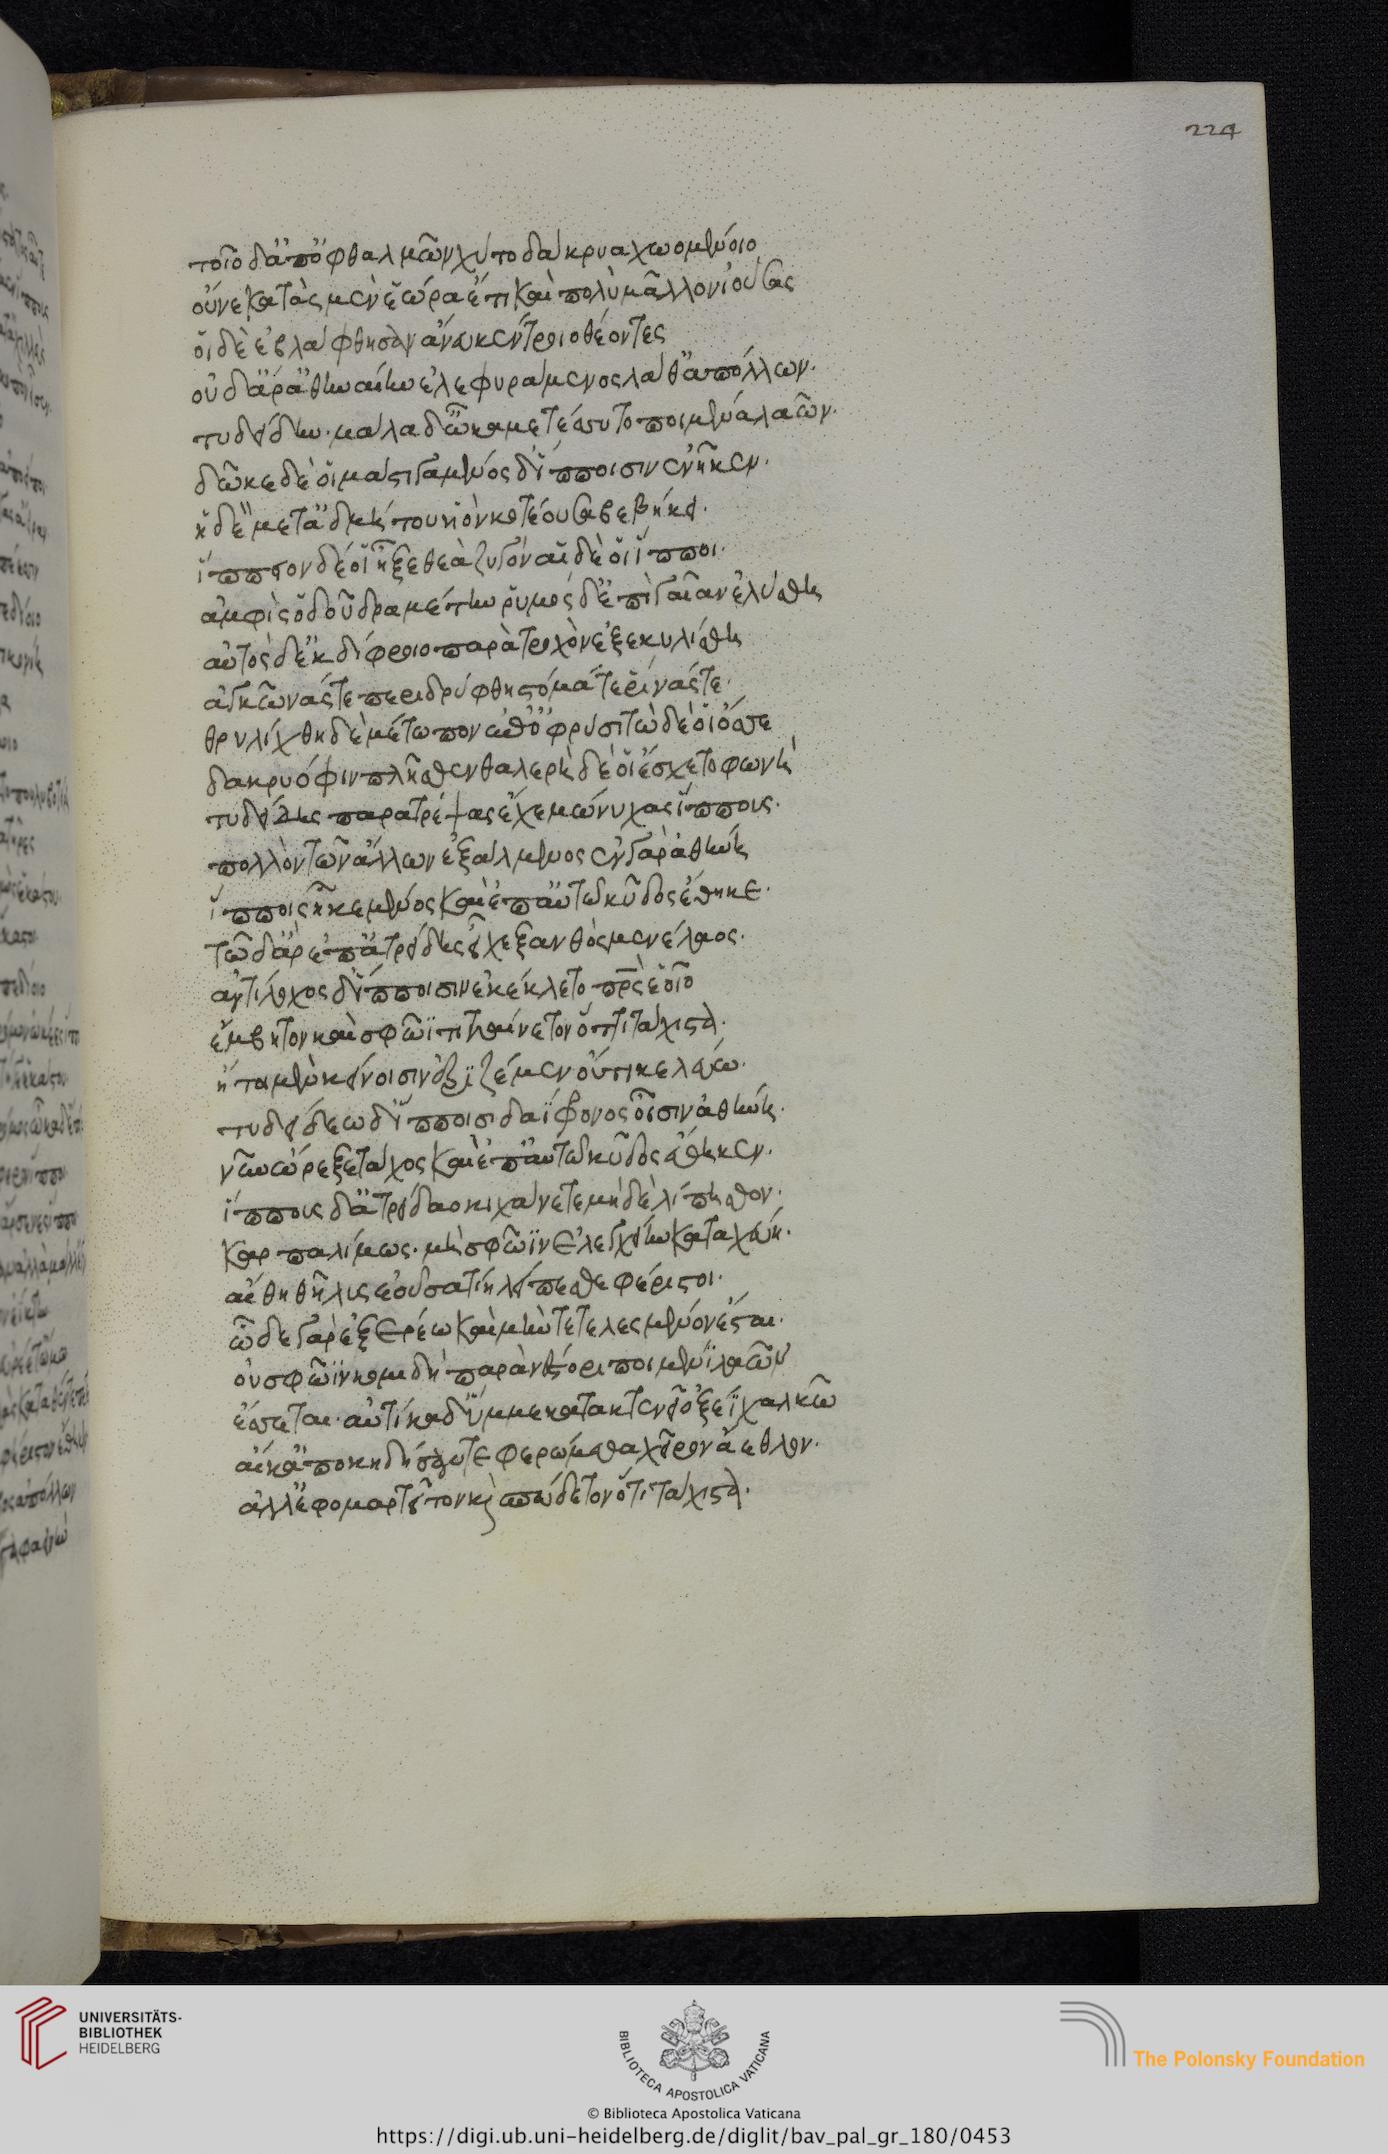 224
τοῖο δ' ἀπ' ὀφθαλμῶν χύτο δάκρυα χωομένοιο
οὕνεκα τὰς μὲν ἑώρα ἔτι καὶ πολὺ μᾶλλον ἰούσας
οἱ δὲ ἐβλάφθησαν ἄνευ κέντροιο θέοντες
οὐδ' ἄρ' ἀθηναίην ἐλεφηράμενος λάθ' ἀπόλλων.
τυδείδην. μάλα δ' ὦκα μετέσσυτο ποιμένα λαῶν.
δῶκε δέ οἱ μάστιγα μένος δ' ἵπποισιν ἐνῆκεν.
ἡ δὲ μετ' ἀδμήτου υἱὸν κοτέουσα βεβήκει.
ἵππειον δέ οἱ ἦξε θεὰ ζυγόν αἱ δέ οἱ ἵπποι.
ἀμφὶς ὁδοῦ δραμέτην ῥυμὸς δ' ἐπὶ γαῖαν ἐλύσθη
αὐτὸς δ' ἐκ δίφροιο παρὰ τροχὸν ἐξεκυλίσθη
ἀγκῶνάς τε περιδρύφθη στόμα τε ῥῖνάς τε.
θρυλίχθη δὲ μέτωπον ἐπ' ὀφρύσι τὼ δέ οἱ ὄσσε
δακρυόφιν πλῆσθεν θαλερὴ δέ οἱ ἔσχετο φωνή
τυδείδης παρατρέψας ἔχε μώνυχας ἵππους.
πολλὸν τῶν ἄλλων ἐξάλμενος ἐν γὰρ ἀθήνη
ἵπποις ἧκε μένος καὶ ἐπ' αὐτῷ κῦδος ἔθηκε.
τῷ δ' ἄρ' ἐπ' ἀτρείδης εἶχε ξανθὸς μενέλαος.
ἀντίλοχος δ' ἵπποισιν ἐκέκλετο πρς ἑοῖο
ἔμβητον καὶ σφῶϊ τιταίνετον ὅττι τάχιστα.
ἤτοι μὲν κείνοισιν ἐριζέμεν οὔτι κελεύω.
τυδείδεω δ' ἵπποισι δαΐφρονος οἷσιν ἀθήνη.
νῦν ὤρεξε τάχος καὶ ἐπ' αὐτῷ κῦδος ἔθηκεν.
ἵππους δ' ἀτρείδαο κιχάνετε μὴ δὲ λίπησθον.
καρπαλίμως. μὴ σφῶϊν ἐλεγχείην καταχεύῃ.
αἴθη θῆλυς ἐοῦσα τίη λείπεσθε φέριστοι.
ὧδε γὰρ ἐξερέω καὶ μὴν τετελεσμένον ἔσται.
οὐ σφῶϊν κομιδὴ παρὰ νέστορι ποιμένι λαῶν
ἔσσεται. αὐτίκα δ' ὔμμε κατακτενεῖ ὀξέϊ χαλκῷ
αἴ κ' ἀποκηδήσαντε φερώμεθα χεῖρον ἄεθλον.
ἀλλ' ἐφομαρτεῖτον κὶ σπεύδετον ὅτι τάχιστα.
UNIVERSITÄTS-
BIBLIOTHEK
HEIDELBERG
BIBLIOTECA APOSTOLICA VATICANA
The Polonsky Foundation
© Biblioteca Apostolica Vaticana
https://digi.ub.uni-heidelberg.de/diglit/bav_pal_gr_180/0453